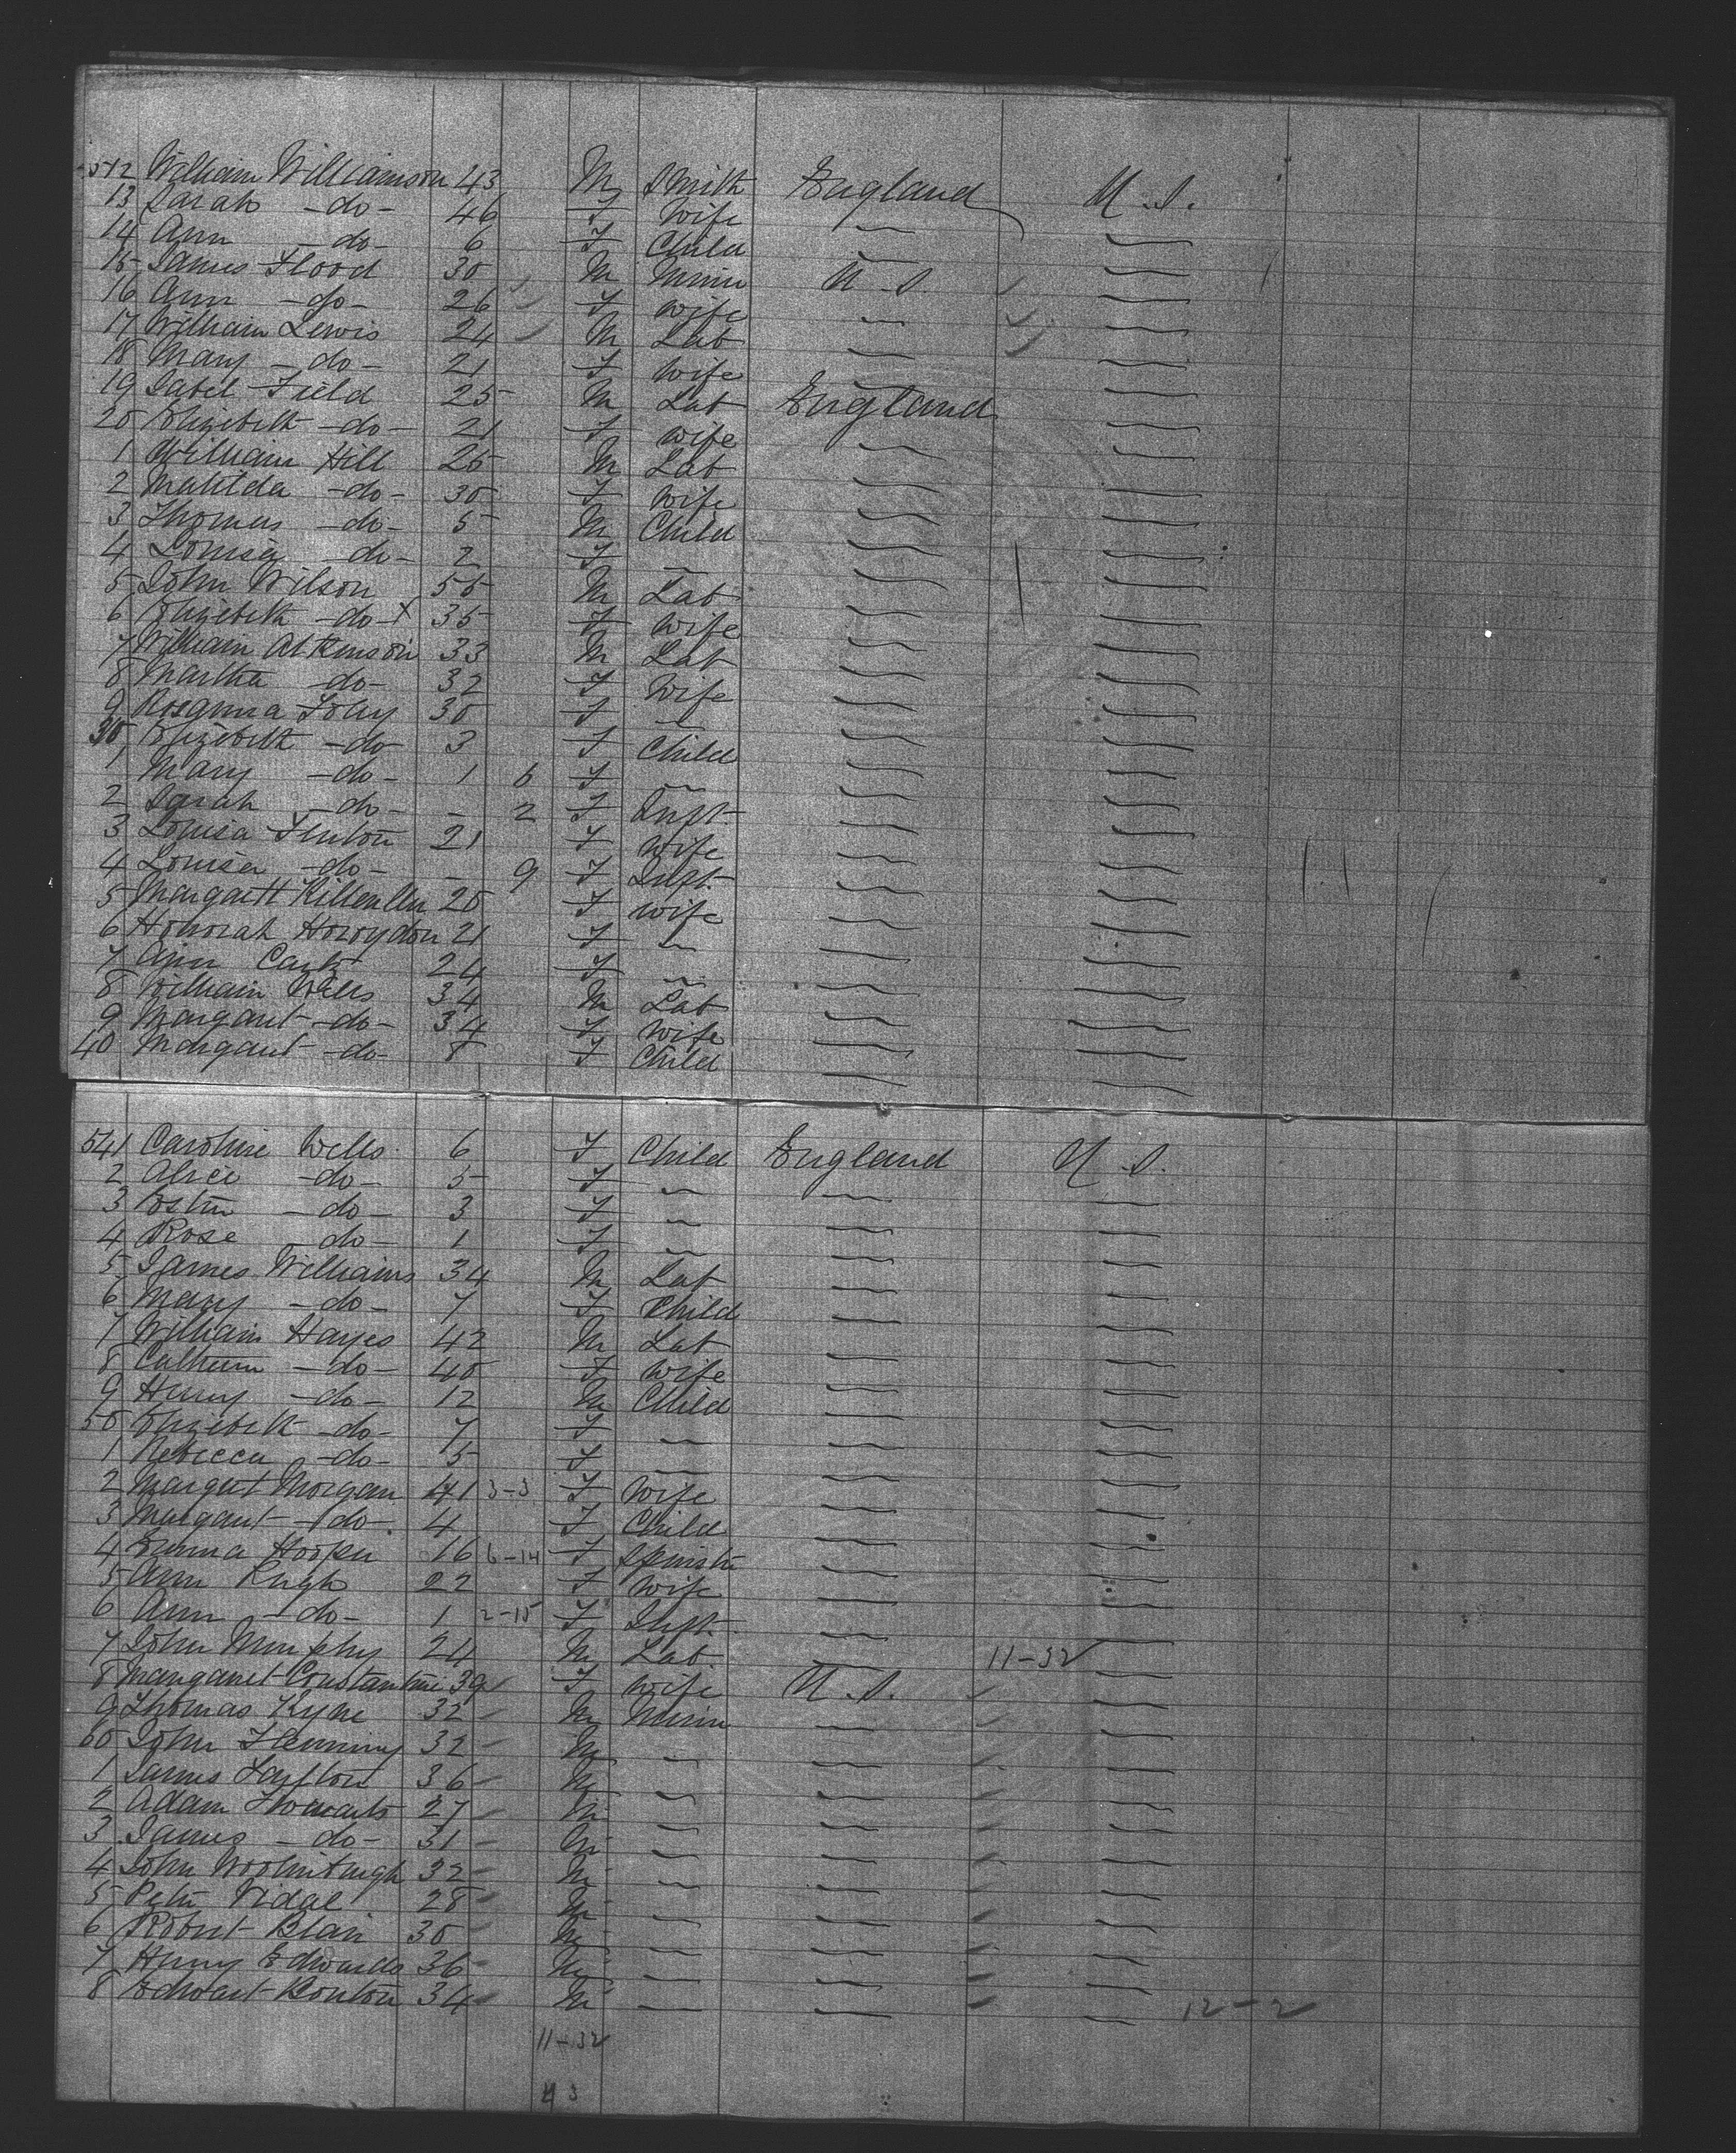 512 William Williamson 43 M Smith England U.S.
13 Sarah -do- 46 F Wife
14 Ann -do- 6 F Child
15 James Flood 30 M Minr U.S.
16 Ann -do- 26 F Wife
17 William Lewis 24 M Lab
18 Mary -do- 21 F Wife
19 Field 25 M Lab England
20 Elizebeth -do- 21 F Wife
1 William Hill 25 M Lab
2 Matilda -do- 30 F Wife
3 Thomas -do- 5 M Child
4 Louisa -do- 2 F
5 John Wilson 55 M Lab
6 Elizebeth -do- X 35 F Wife
7 William Atkinson 33 M Lab
8 Martha -do- 32 F Wife
9 Rosanna Foley 30 F
30 Elizebeth -do- 3 F Child
1 Mary -do- 1 6 F
2 Sarah -do- - 2 F Inft.
3 Louisa Fenton 21 F Wife
4 Louisa -do- - 9 F Inft.
5 Margarett 20 F Wife
6 Honorah 21 F
7 Ann 24 F
8 William Wells 34 M Lab
9 Margaret -do- 34 F Wife
40 Margaret -do- 8 F Child
541 Caroline Wells 6 F Child England U.S.
2 Alice -do- 5 F
3 -do- 3 F
4 Rose -do- 1 F
5 James Williams 34 M Lab
6 Mary -do- 7 F Child
7 William Hayes 42 M Lab
8 -do- 40 F Wife
9 Henry -do- 12 M Child
50 Elizebeth -do- 7 F
1 Rebecca -do- 5 F
2 Margret Morgan 41 3-3 F Wife
3 Margaret -do- 4 F Child
4 Emma Hooper 16 6-14 F Spinstr
5 Ann Pugh 22 F Wife
6 Ann -do- 1 2-15 F Inft.
7 John Murphy 24 M Lab 11-32
8 Margaret Constantine 39 F Wife U.S.
9 Thomas Kyne 32 M Minr
60 John Flemming 32 M
1 James 36 M
2 Adam 27 M
3 James -do- 31 M
4 John 32 M
5 Peter Vidal 28 M
6 Robert Blair 30 M
7 Henry Edwards 36 M
8 Edwart Bonton 34 M 12-2
11-32
43